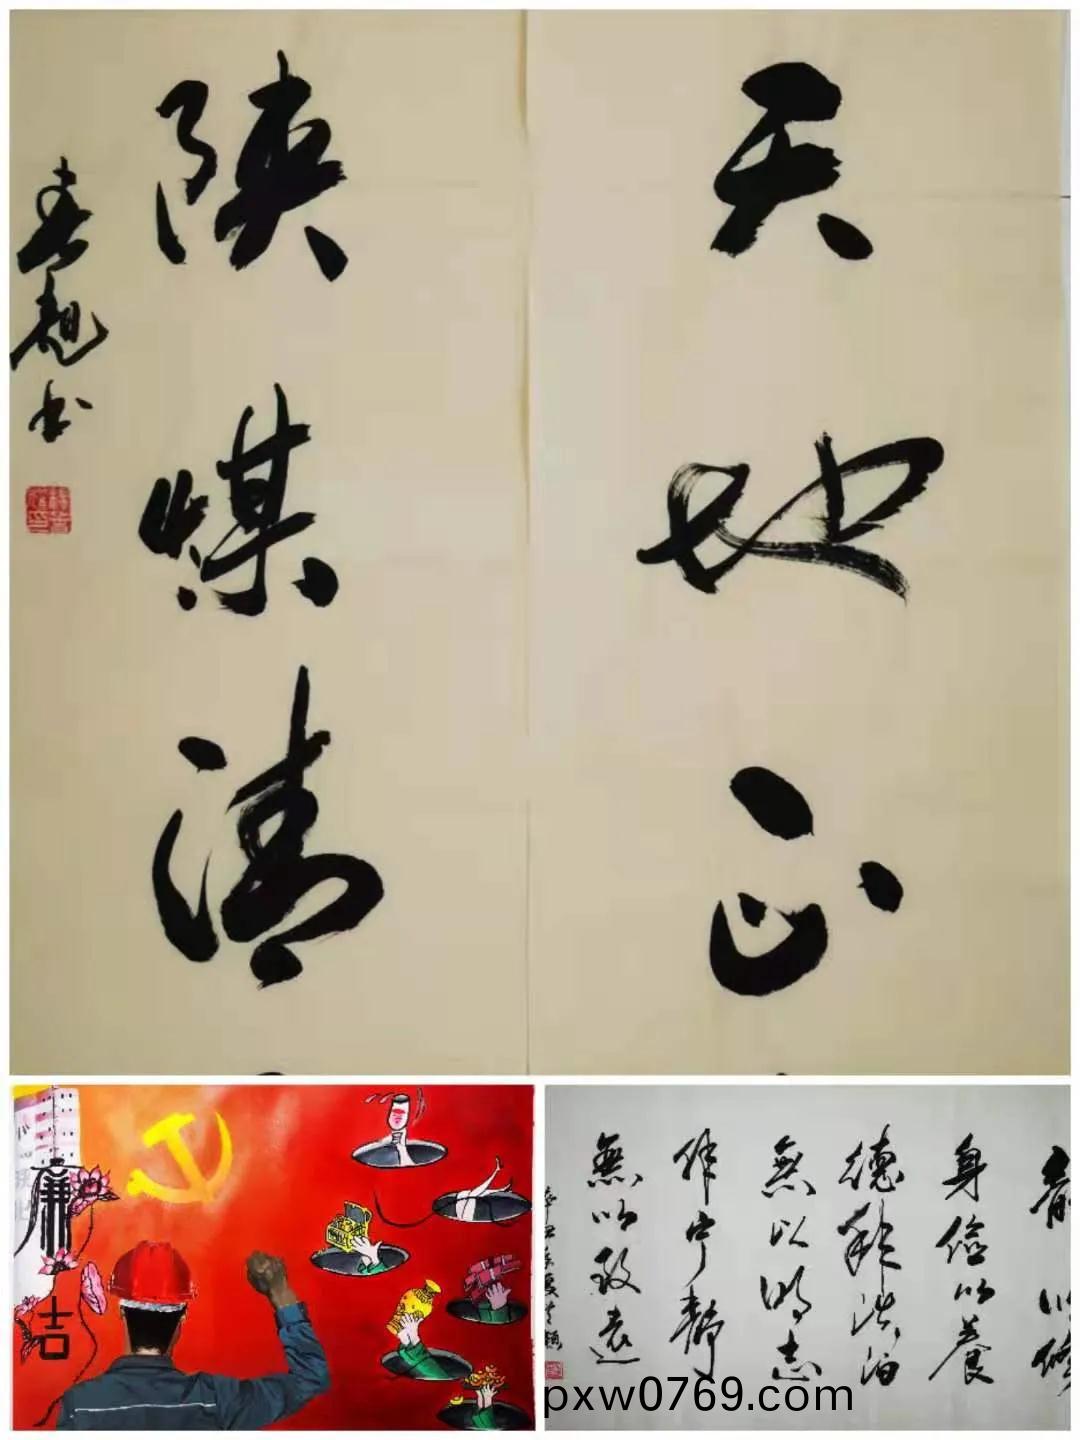 天地正
陕煤清
廉洁
静以修
身俭以养
德非淡泊
無以明志
非宁静
無以致遠
pxw0769.com